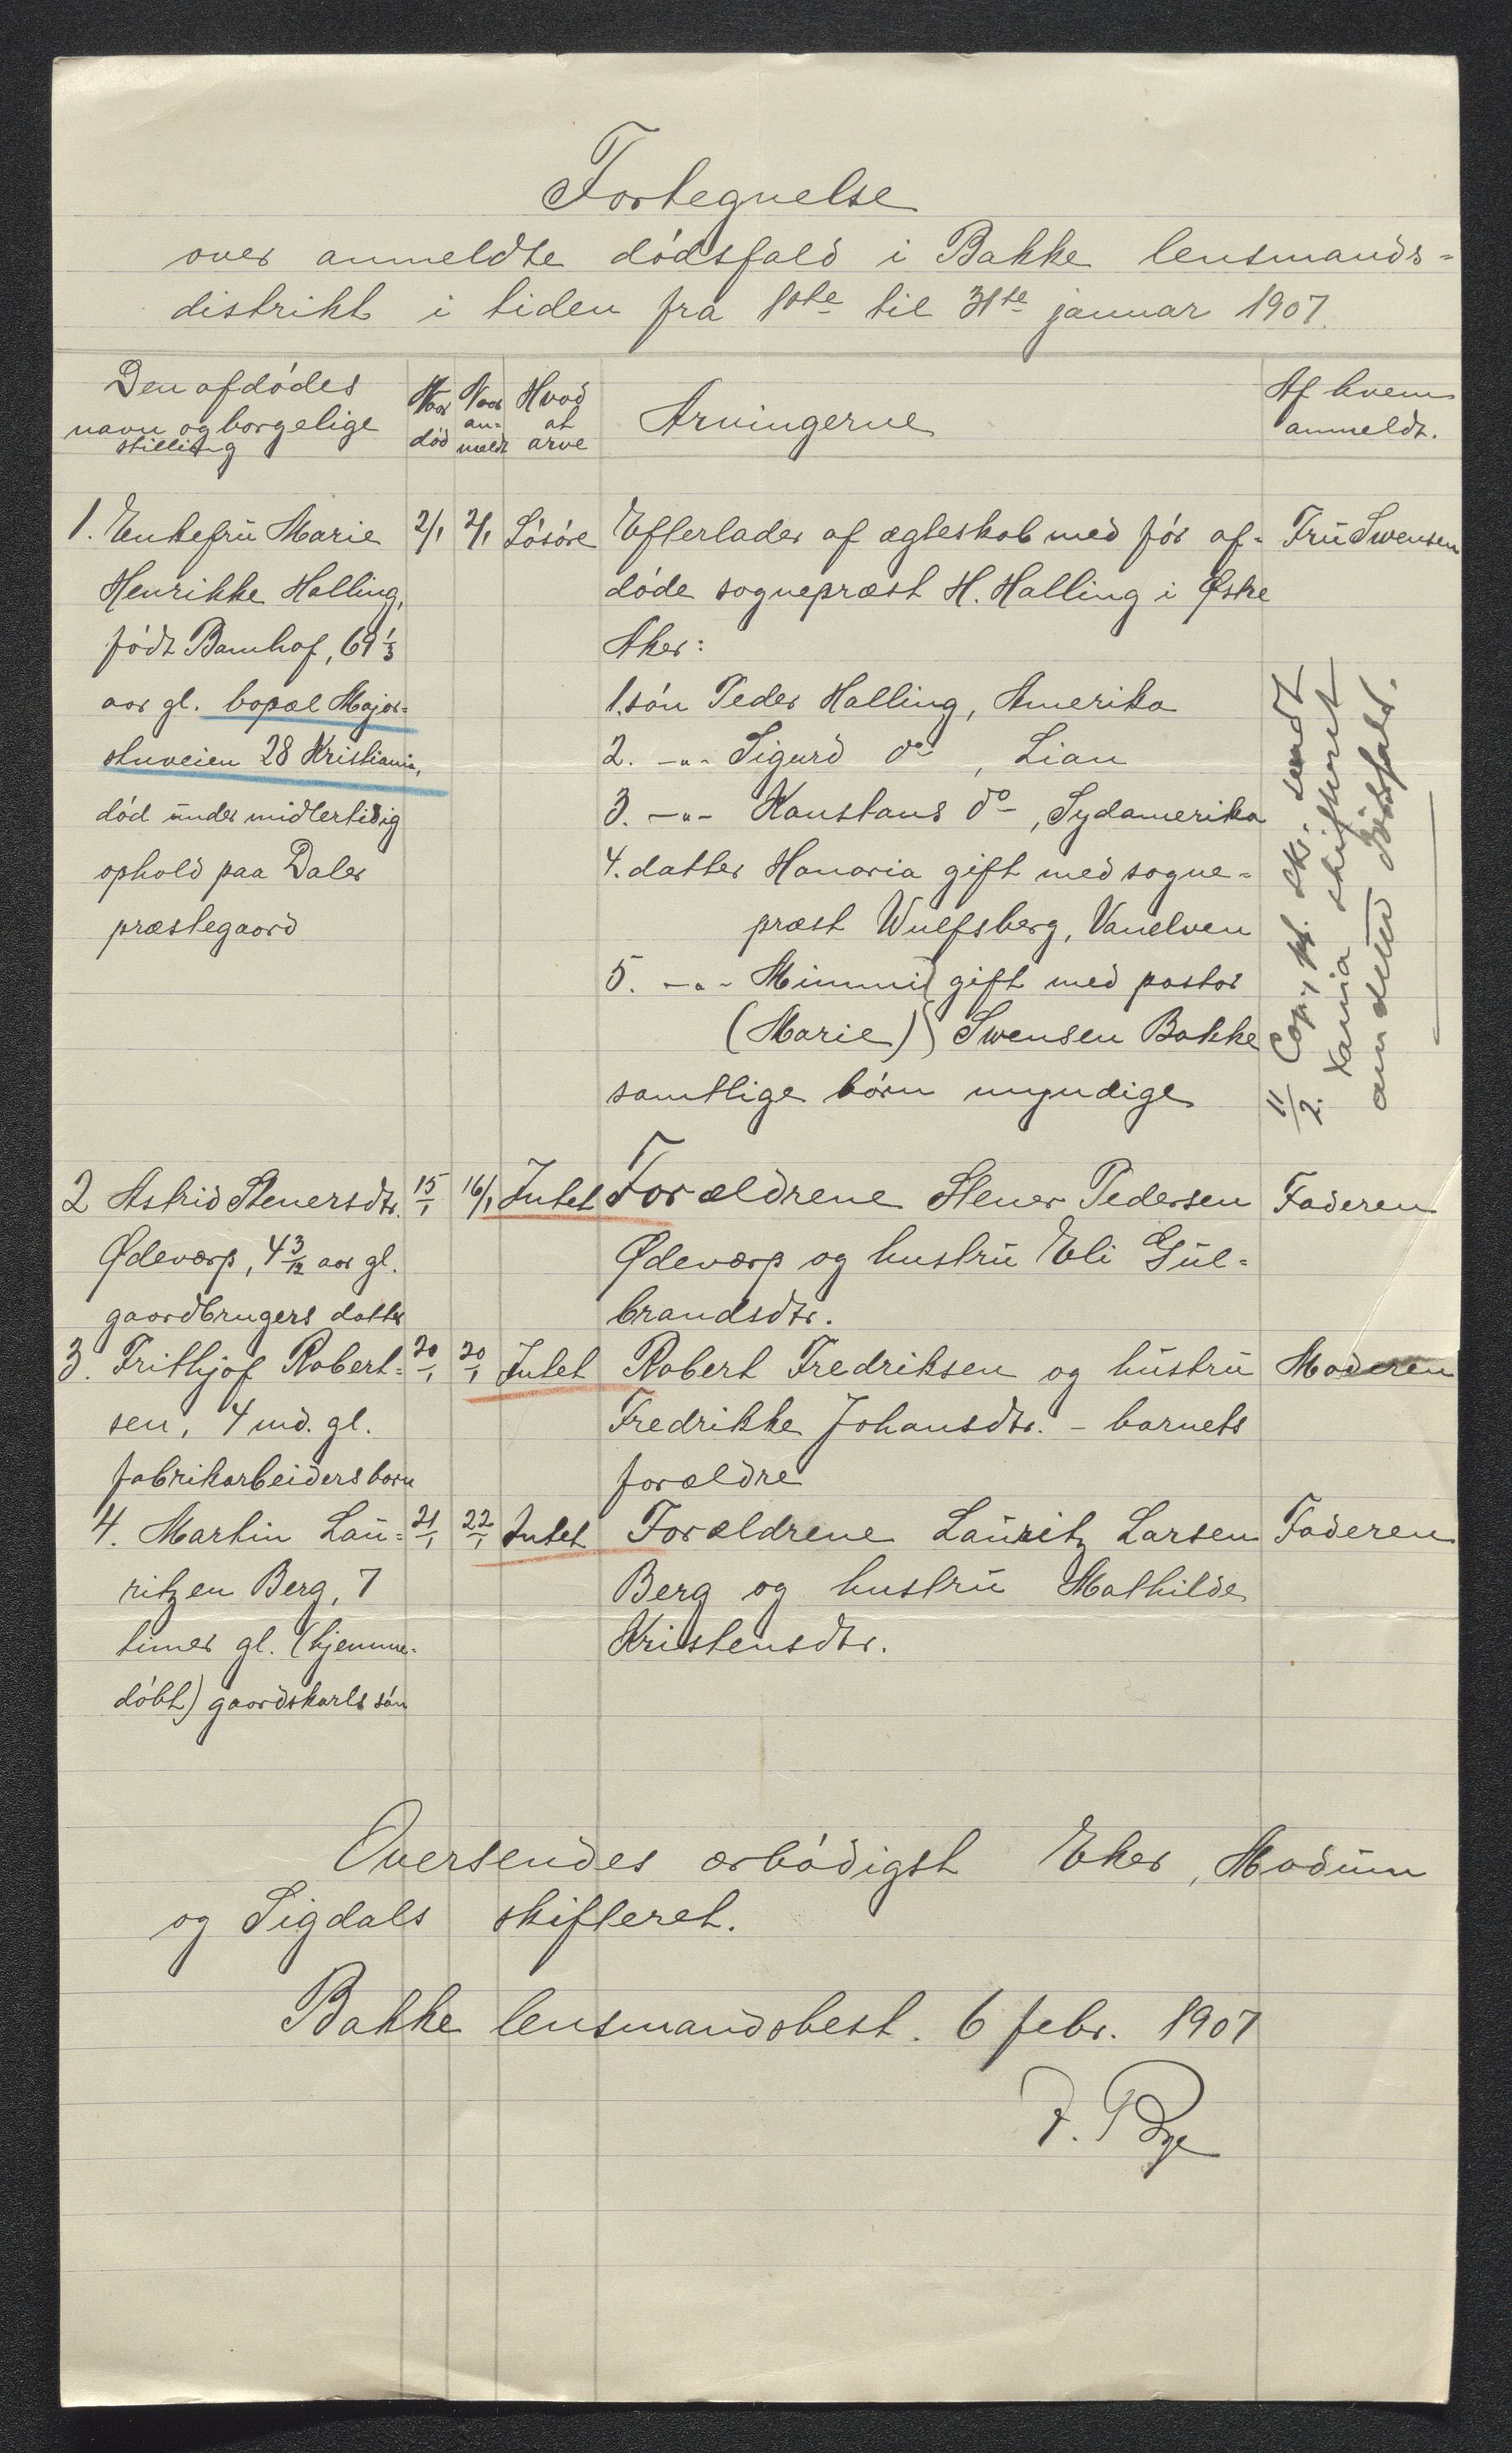 Fortegnelse
over anmeldte dødsfald i Bakke lensmands-
distrikt i tiden fra 1ste til 31te januar 1907.
Den afdødes
navn og borgelige
stilling
Naar
død
Naar
an-
meldt
Hvad
at
arve
Arvingerne
Af hvem
anmeldt.
1. Enkefru Marie 2/1 2/1 Løsøre Efterlader af ægteskab med før af- Fru Swensen
Henrikke Halling, døde sogneprest H. Halling i Østre
født Bamhof, 69 1/3 Aker:
aar gl. bopæl Major- 1. søn Peder Halling, Amerika
stuveien 28 Kristiania, 2. -"- Sigurd do, Lian
død under midlertidig 3. -"- Konstans do, Sydamerika
ophold paa Daler 4. datter Honoria gift med sogne-
præstegaard præst Wulfsberg, Vanelven
5. -"- Mimmi } gift med pastor
(Marie) } Swensen Bakke
samtlige børn myndige
11/2. Copy sendt
Xania skifteret
om dette dødsfald.
2 Astrid Stenersdtr. 15/1 16/1 Intet Forældrene Stener Pedersen Faderen
Ødeværp, 4 3/12 aar gl. Ødeværp og hustru Eli Gul-
gaardbrugers datter brandsdtr.
3. Frithjof Robert- 20/1 20/1 Intet Robert Fredriksen og hustru Moderen
sen, 4 md. gl. Fredrikke Johansdtr. - barnets
fabrikarbeiders barn forældre
4. Martin Lau- 21/1 22/1 Intet Forældrene Lauritz Larsen Faderen
ritzen Berg, 7 Berg og hustru Mathilde
timer gl. (hjemme- Kristensdtr.
døbt) gaardskarls søn
Oversendes ærbødigst Eker, Modum
og Sigdals skifteret.
Bakke lensmandsbest. 6 febr. 1907
F. Bye